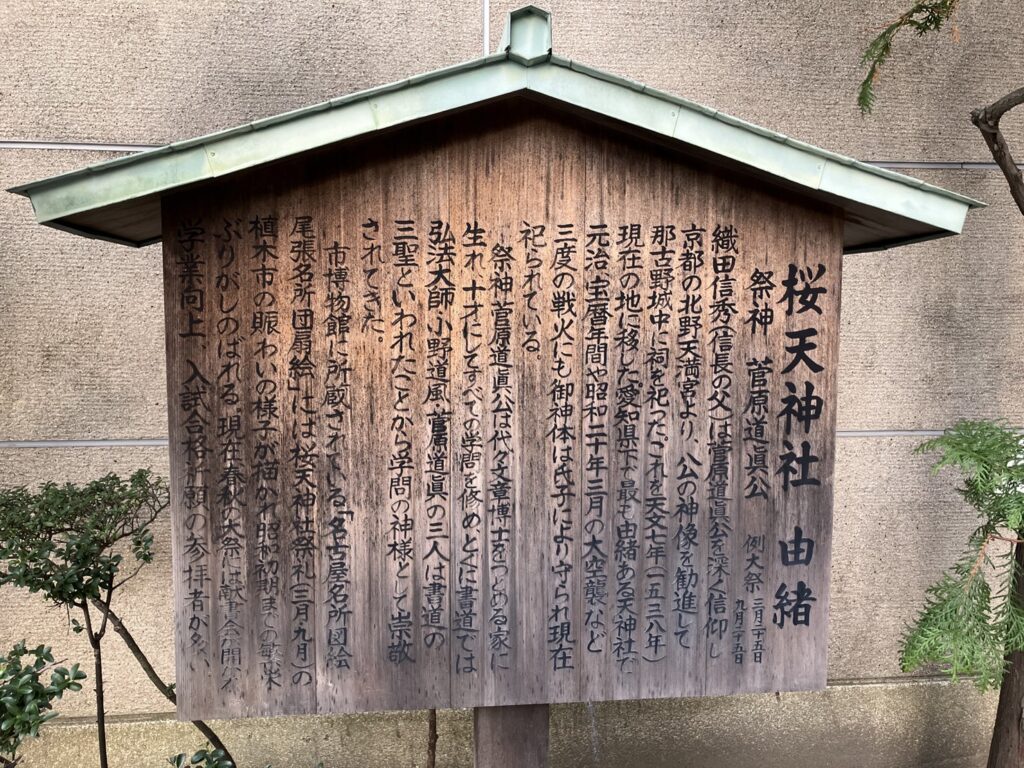 桜天神社 由緒
祭神 菅原道眞公 例大祭 三月二十五日 九月二十五日
織田信秀(信長の父)は菅原道眞公を深く信仰し
京都の北野天満宮より、公の神像を勧進して
那古野城中に祠を祀った。これを天文七年(一五三八年)
現在の地に移した愛知県下で最も由緒ある天神社で
元治、宝暦年間や昭和二十年三月の大空襲など
三度の戦火にも御神体は氏子により守られ現在
祀られている。
祭神 菅原道眞公は代々文章博士をつとめる家に
生れ、十才にしてすべての学問を修めとくに書道では
弘法大師、小野道風、菅原道眞の三人は書道の
三聖といわれたことから学問の神様として崇敬
されてきた。
市博物館に所蔵されている「名古屋名所団絵
尾張名所団扇絵」には桜天神社祭礼(三月九月)の
植木市の賑わいの様子が描かれ昭和初期までの繁栄
ぶりがしのばれる。現在春秋の大祭には献書会開
学業向上、入試合格祈願の参拝者が多い